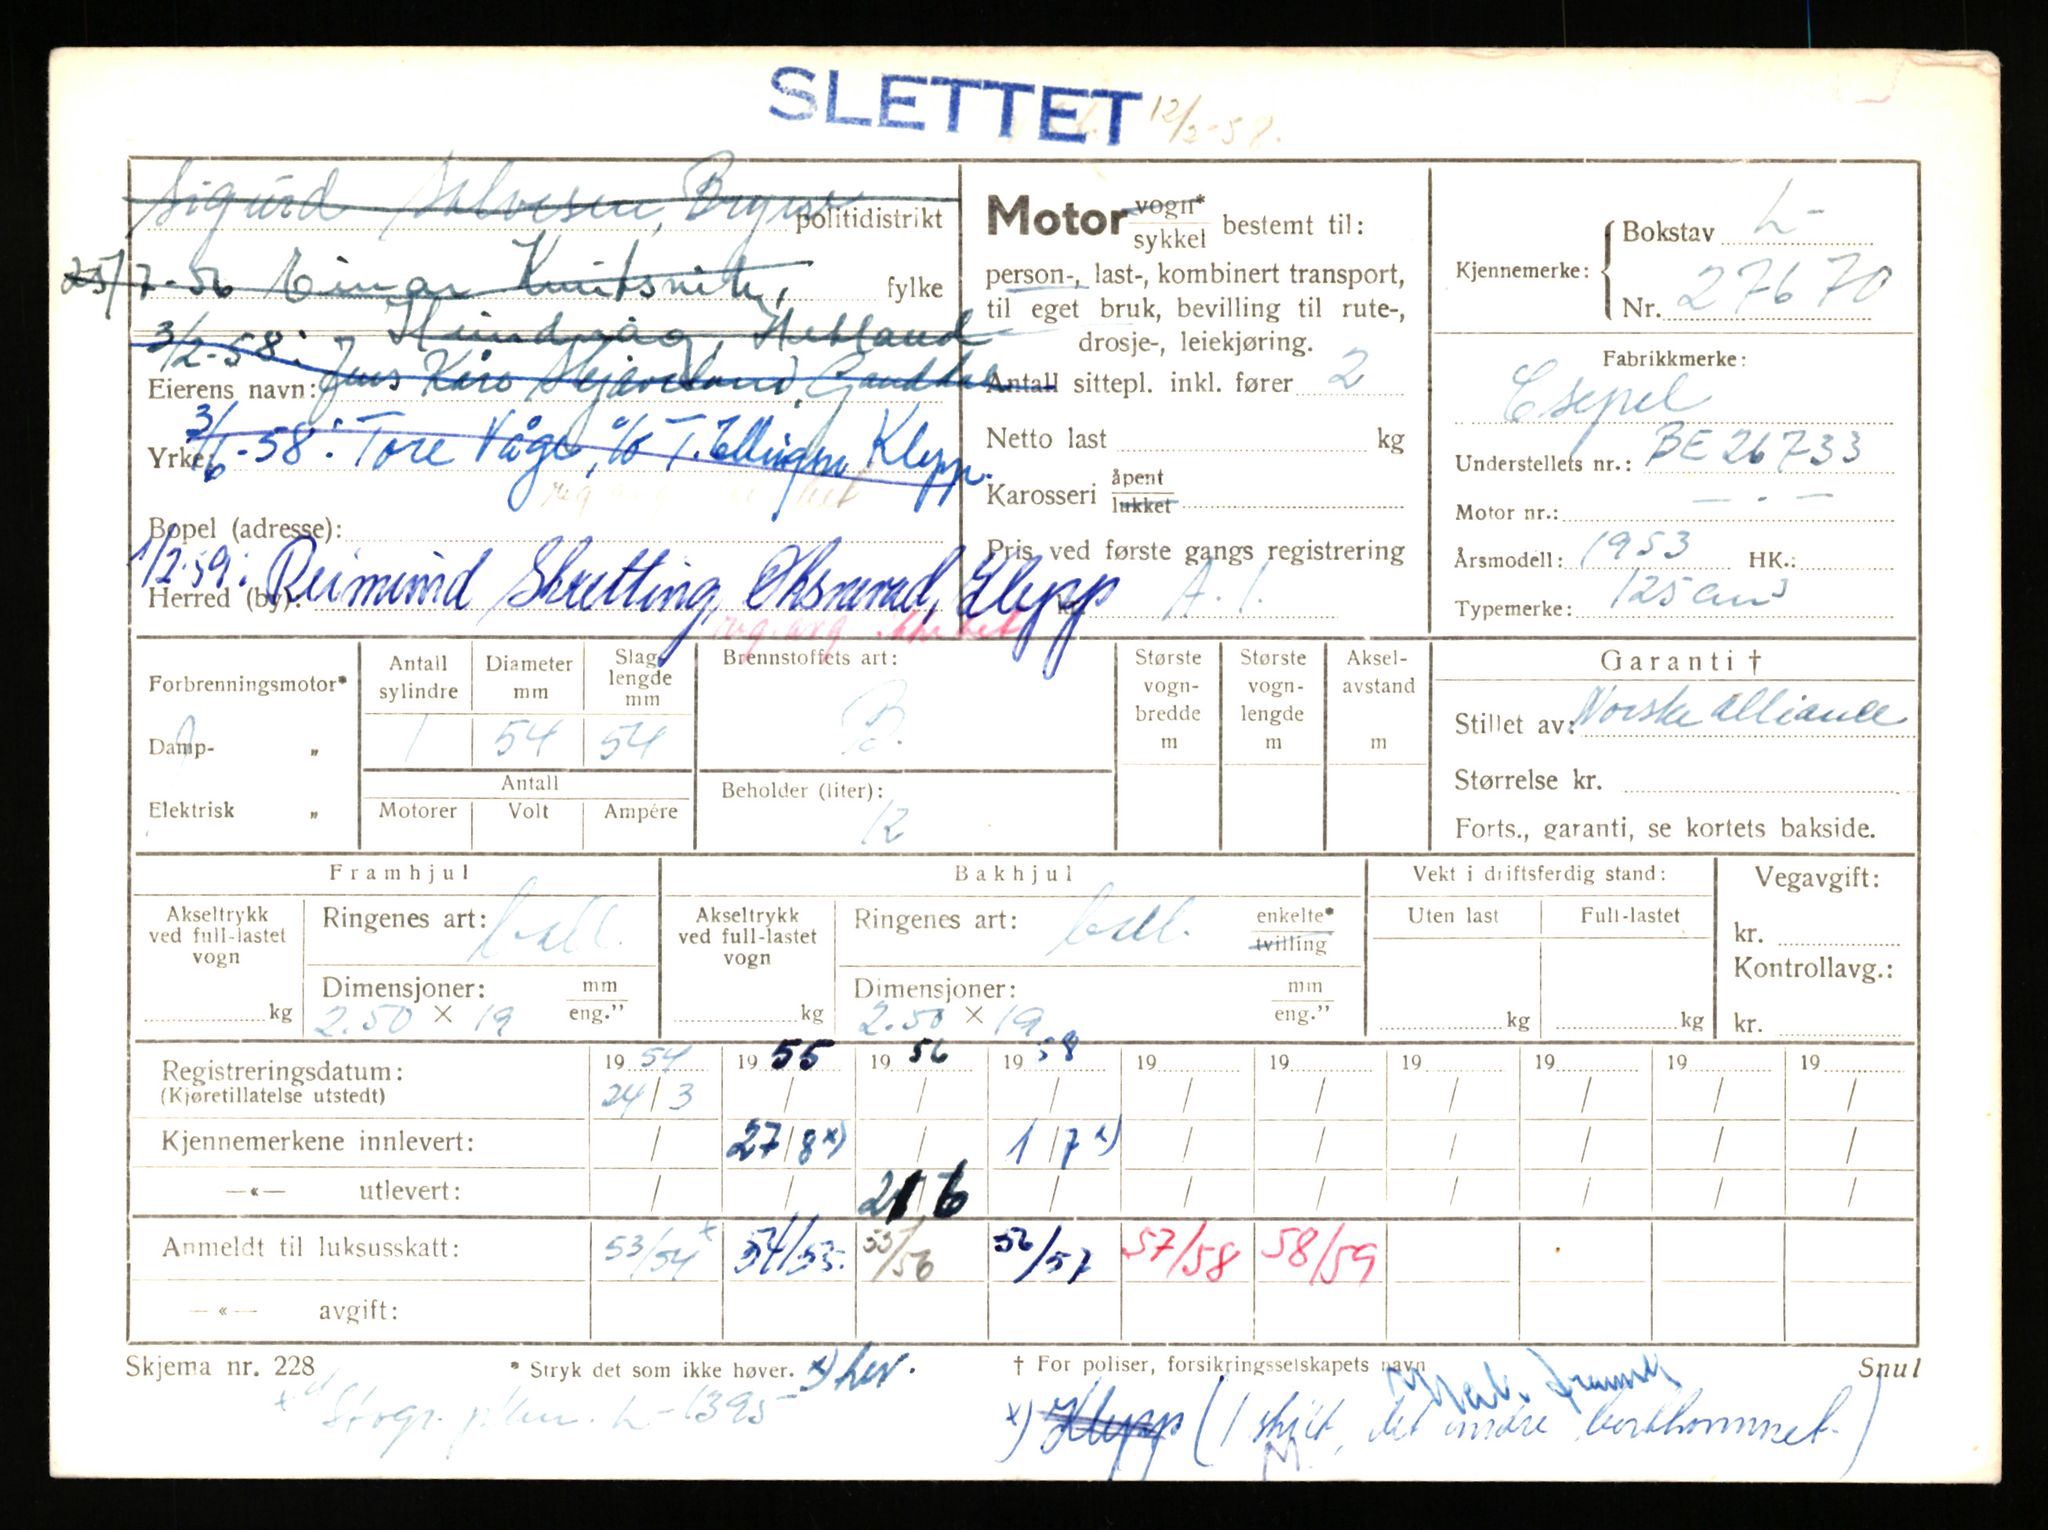 SLETTET 12/2-58.
Sigurd Salvesen, Bryne politidistrikt
25/7-56 Einar Knutsvik, fylke
Hundvåg, Hetland
3/2-58: Jens Kåre Skjæveland, Ganddal
Eierens navn:
3/6-58: Tore Våge, c/o T. Ellingsen Klepp.
Yrke
Bopel (adresse):
1/2-59: Reimund Skretting, Øksnevad, Klepp
Herred (by):
reg.avg. ikke bet
Motor vogn* sykkel bestemt til:
person-, last-, kombinert transport,
til eget bruk, bevilling til rute-,
drosje-, leiekjøring.
Antall sittepl. inkl. fører 2
Netto last kg
Karosseri åpent lukket
Pris ved første gangs registrering
kr. A. 1.
Kjennemerke: Bokstav L-
Nr. 27670
Fabrikkmerke:
Csepel
Understellets nr.: BE 26733
Motor nr.: — . —
Årsmodell: 1953 HK.:
Typemerke: 125 cm3
Forbrenningsmotor*
Damp- „
Elektrisk „
Antall sylindre 1
Diameter mm 54
Slaglengde mm 54
Antall
Motorer Volt Ampére
Brennstoffets art:
B.
Beholder (liter):
12
Største vogn-bredde m
Største vogn-lengde m
Aksel-avstand m
Garanti †
Stillet av: Norske Alliance
Størrelse kr.
Forts., garanti, se kortets bakside.
Framhjul
Akseltrykk ved full-lastet vogn kg
Ringenes art: ball.
Dimensjoner: mm eng."
2.50 × 19
Bakhjul
Akseltrykk ved full-lastet vogn kg
Ringenes art: ball. enkelte* tvilling
Dimensjoner: mm eng."
2.50 × 19
Vekt i driftsferdig stand:
Uten last Full-lastet
kg kg
Vegavgift:
kr.
Kontrollavg.:
kr.
Registreringsdatum: 19 54 19 55 19 56 19 58 19 19 19 19 19 19
(Kjøretillatelse utstedt) 24/3 / / / / / / / / /
Kjennemerkene innlevert: / 27/8 x) / 1/7 x) / / / / / /
—«— utlevert: / / 21/6 / / / / / / /
Anmeldt til luksusskatt: 53/54 x 54/55 55/56 56/57 57/58 58/59
—«— avgift:
Skjema nr. 228 * Stryk det som ikke høver. x) lev. † For poliser, forsikringsselskapets navn Snul
L-1395
x) Klepp (1 skilt, det andre bortkommet.)